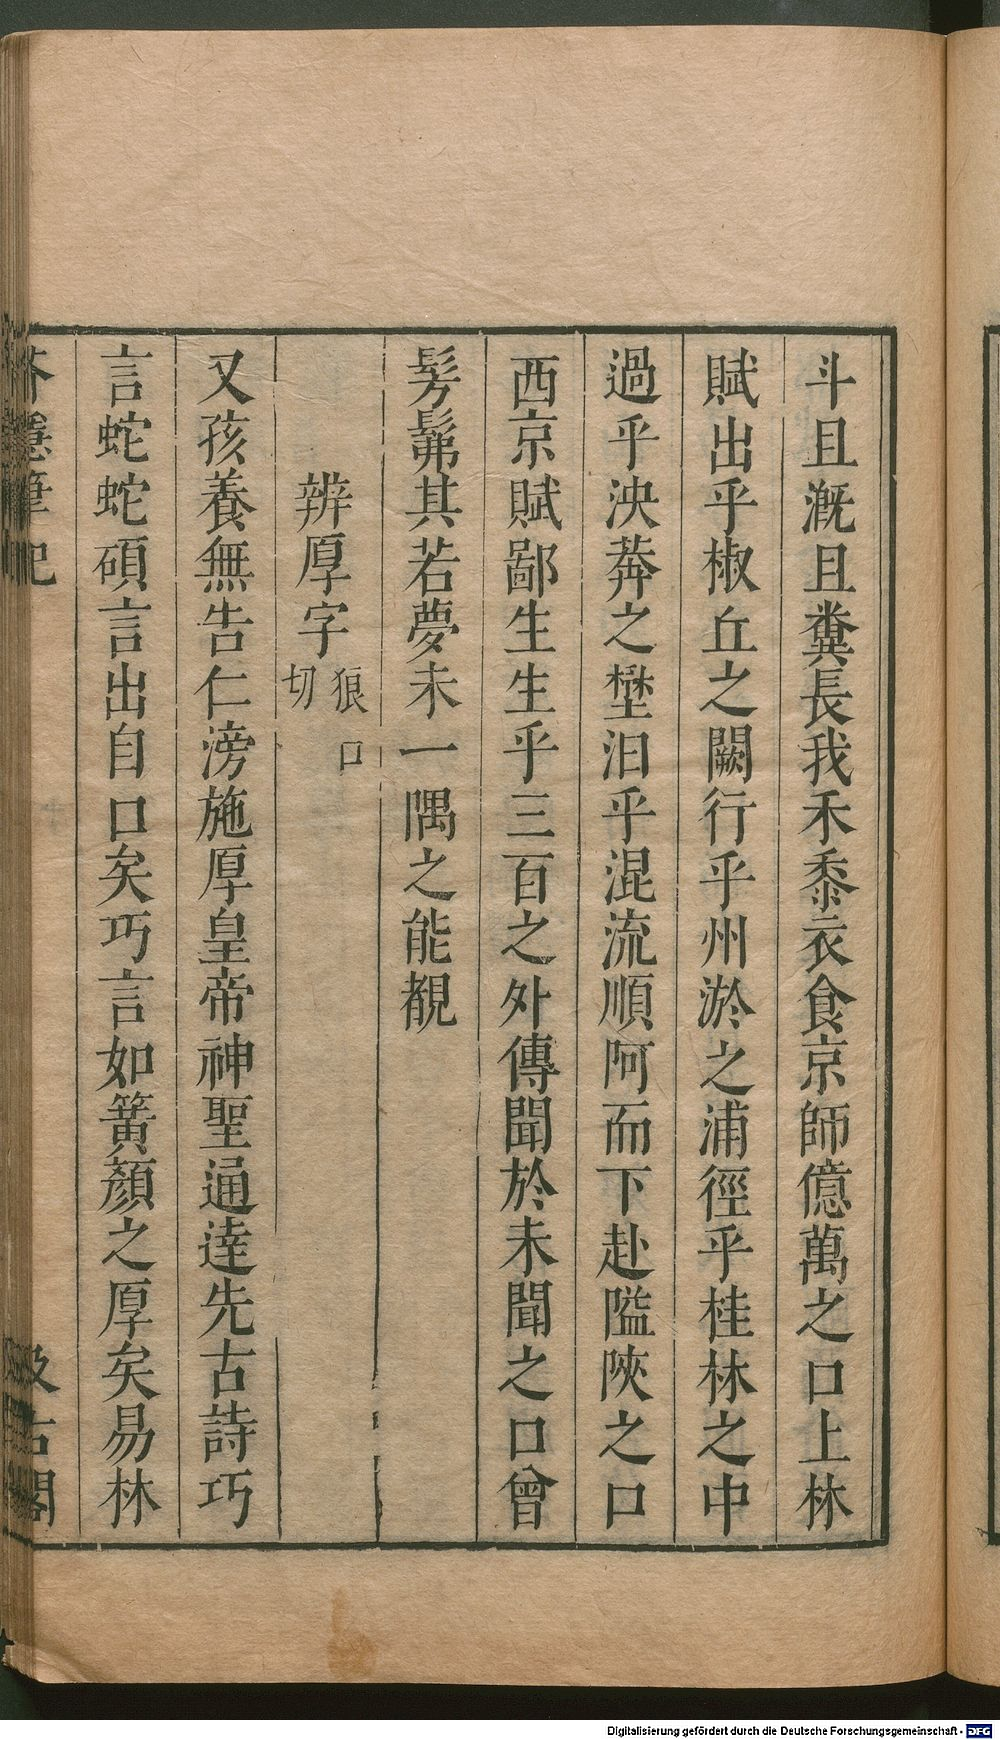 斗且漑且糞長我禾黍衣食京師億萬之口上林
賦出乎椒丘之闕行乎州淤之浦徑乎桂林之中
過乎泱莽之壄汨乎混流順阿而下赴隘陜之口
西京賦鄙生生乎三百之外傳聞於未聞之口曾
髣髴其若夢未一隅之能覩
辨厚字狼口切
又孩養無告仁滂施厚皇帝神聖通達先古詩巧
言蛇蛇碩言出自口矣巧言如簧顏之厚矣易林
芥隱筆記
汲古閣
Digitalisierung gefördert durch die Deutsche Forschungsgemeinschaft - DFG